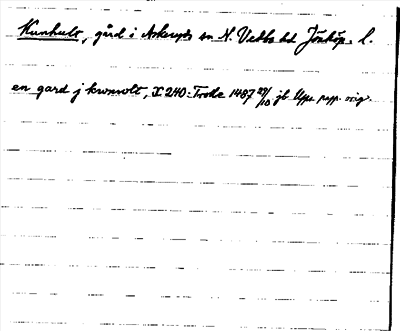 Kunhult, gård i Askeryds sn N. Vedbo hd Jönköp. l.
en gard j kunwolt, X 240 Trolle 1487 29/10 jb Upps. papp. orig.